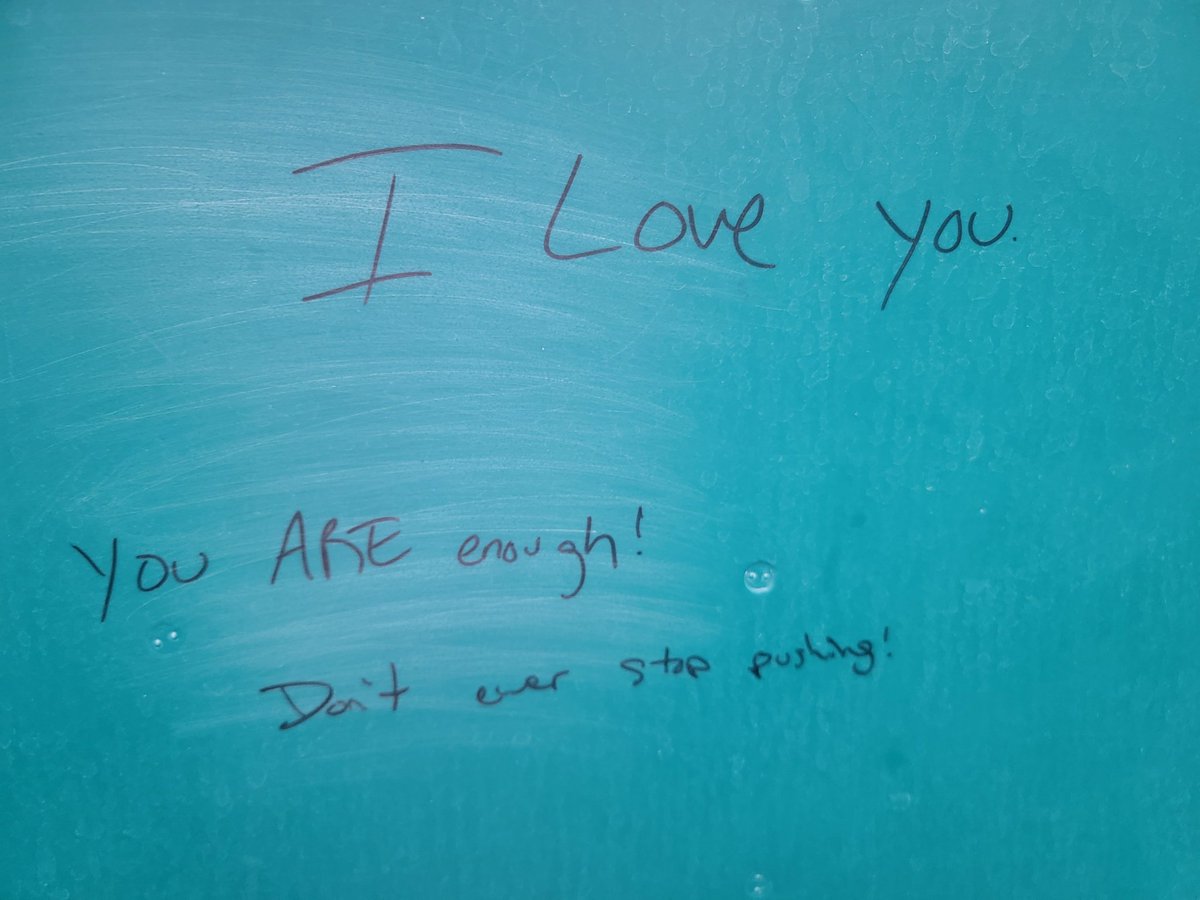 I Love you.
You ARE enough!
Don't ever stop pushing!